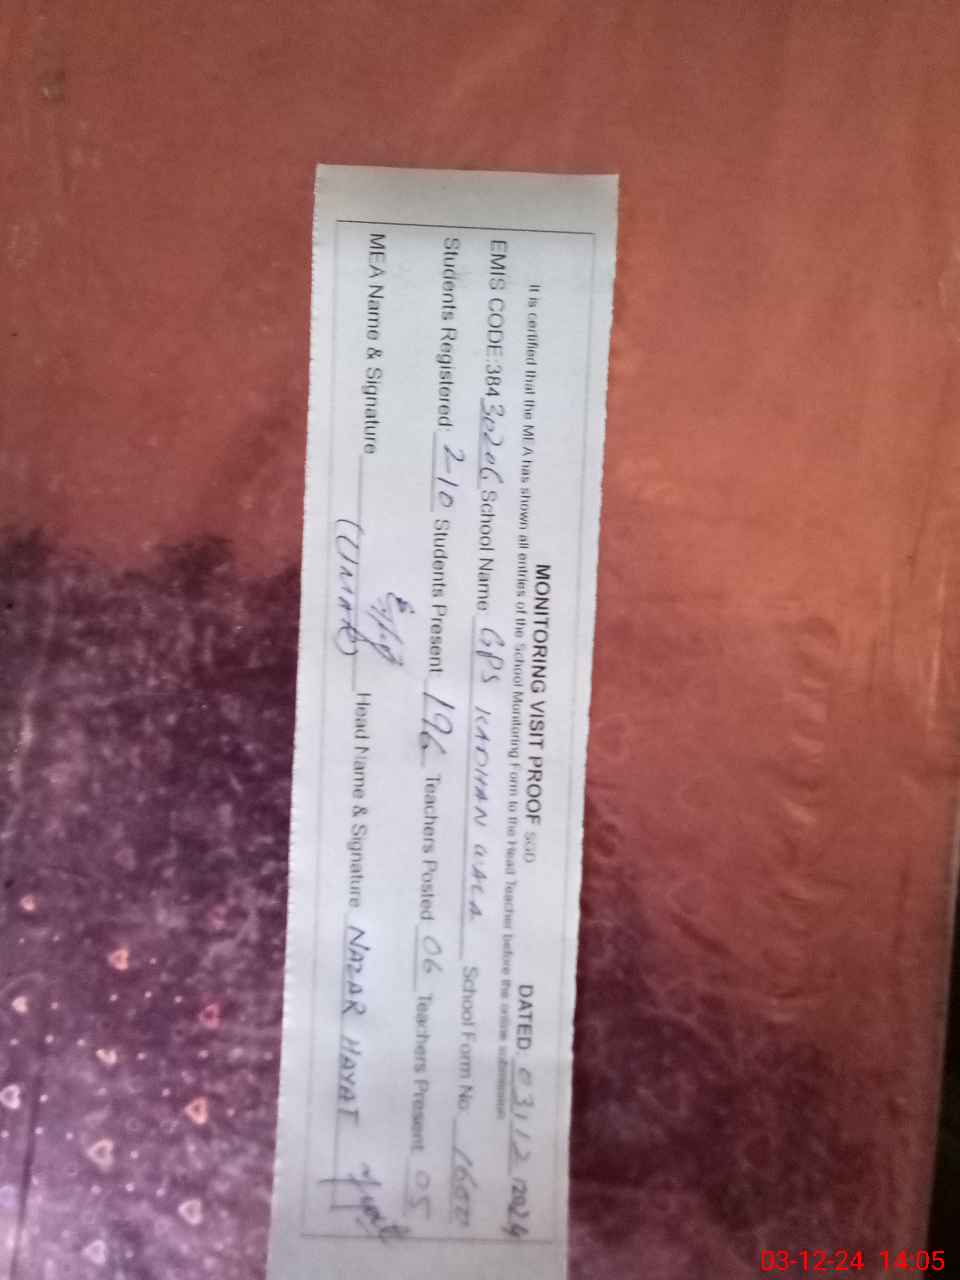 MONITORING VISIT PROOF SGD DATED 03/12/2024
It is certified that the MEA has shown all entries of the School Monitoring Form to the Head Teacher before the online submission
EMIS CODE:38430206 School Name GPS KADHAN WALA School Form No.
Students Registered: 210 Students Present 196 Teachers Posted 06 Teachers Present 05
MEA Name & Signature (UMAR) Head Name & Signature NAZAR HAYAT
03-12-24 14:05